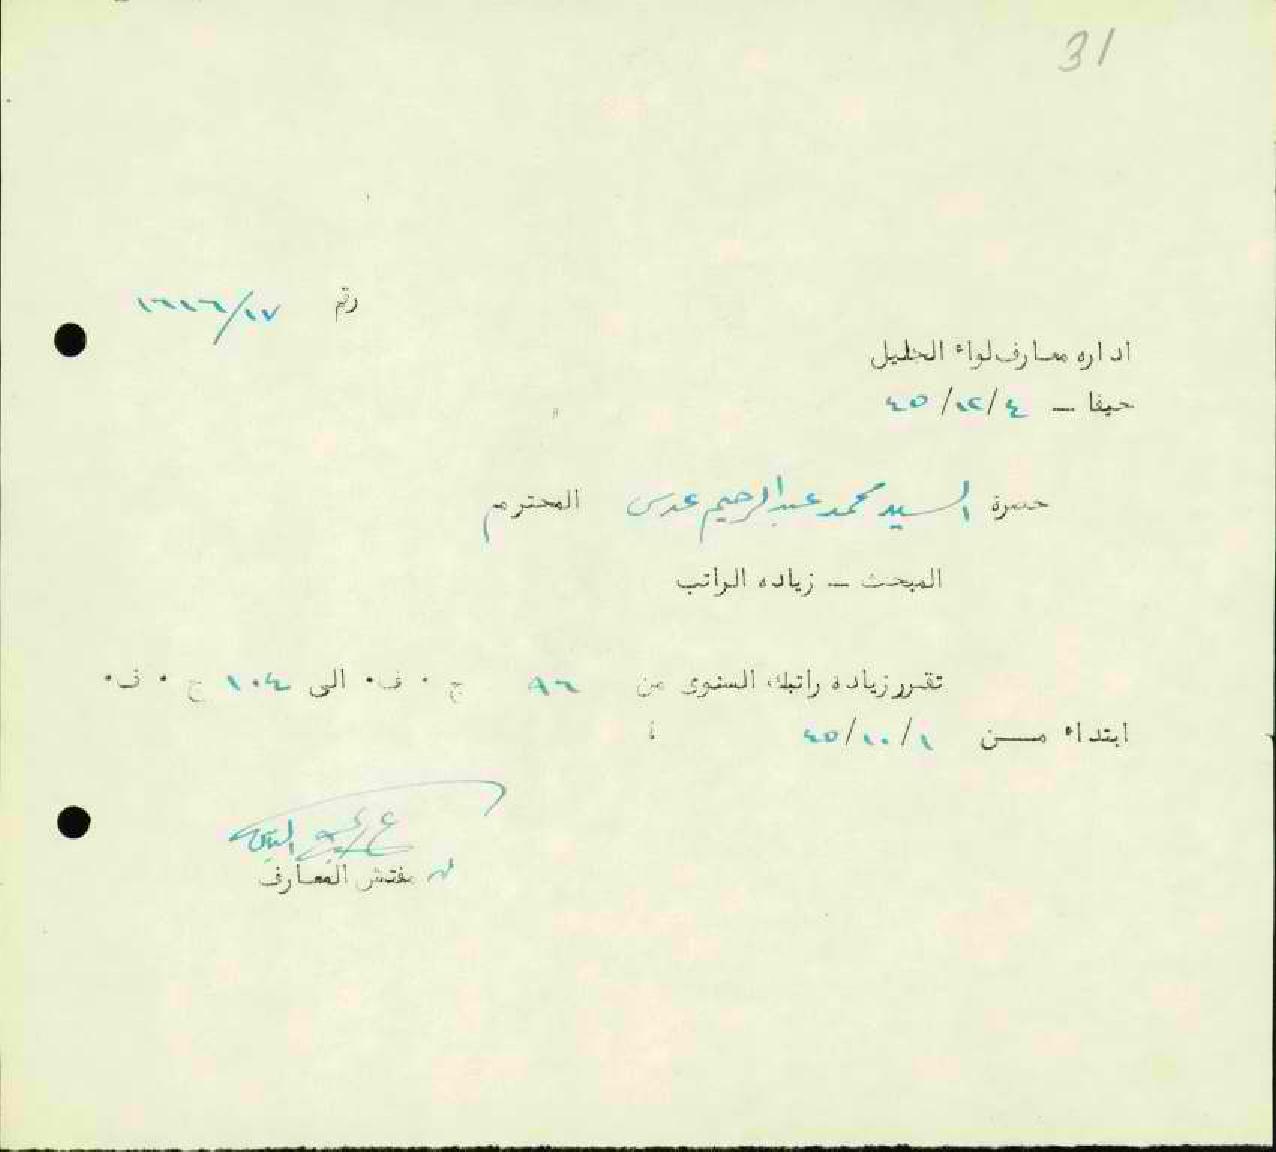 31
رقم ١٦١٦/١٧
اداره معارف لواء الجليل
حيفا – ٤/١٢/٤٥
حضرة السيد محمد عبد الرحيم عدس المحترم
المبحث – زياده الراتب
تقرر زياده راتبك السنوى من ٩٦ ج٠ف٠ الى ١٠٤ ج٠ف٠
ابتداء من ١/١٠/٤٥
مفتش المعارف